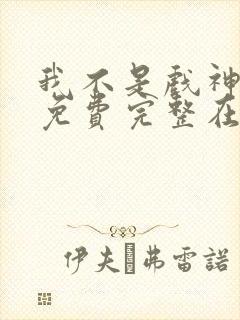 我不是戲神
免費完整在
伊夫·弗雷諾